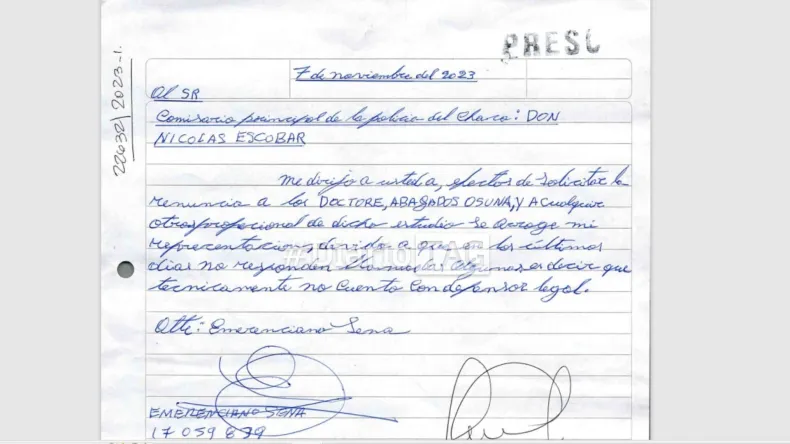 PRESU
22632/2023-1.
7 de noviembre del 2023
Al SR
Comisario principal de la policia del Chaco: DON
NICOLAS ESCOBAR
me dirijo a usted a, efectos de solicitar la
renuncia a los DOCTORE, ABAGADOS OSUNA, Y A cualquier
otros profecional de dicho estudio se arroge mi
representacion, devido a que en los últimos
dias no responden llamada algunas es decir que
tecnicamente no cuento con defensor legal.
Atte: Emerenciano Sena
EMERENCIANO SENA
17 059 879